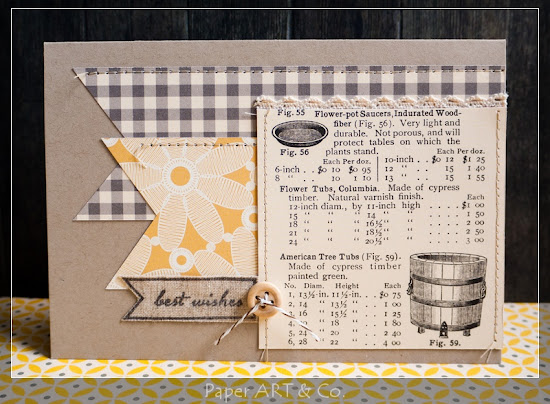 Fig. 55 Flower-pot Saucers, Indurated Wood-
fiber (Fig. 56). Very light and
durable. Not porous, and will
protect tables on which the
plants stand.
Fig. 56
Each Per doz. Each Per doz.
6-inch . . $0 10 $0 95
8 " . . 10 1 10
10-inch . . $0 12 $1 25
12 " . . 15 1 40
13 " . . 15 1 55
Flower Tubs, Columbia. Made of cypress
timber. Natural varnish finish. Each
12-inch diam., by 11-inch high . . . $1 00
15 " " 14 " . . . 1 50
18 " " 16½ " . . . 2 00
21 " " 18½ " . . . 2 50
24 " " 20½ " . . . 3 00
American Tree Tubs (Fig. 59).
Made of cypress timber
painted green.
No. Diam. Height Each
1, 13½-in. 11½-in. . . $0 75
2, 14 " 13 " . . 1 00
3, 16 " 15½ " . . 1 25
4, 18 " . . 1 80
5, 24 " 20 " . . 2 40
6, 28 " 22 " . . 4 00
Fig. 59.
best wishes
Paper ART & Co.